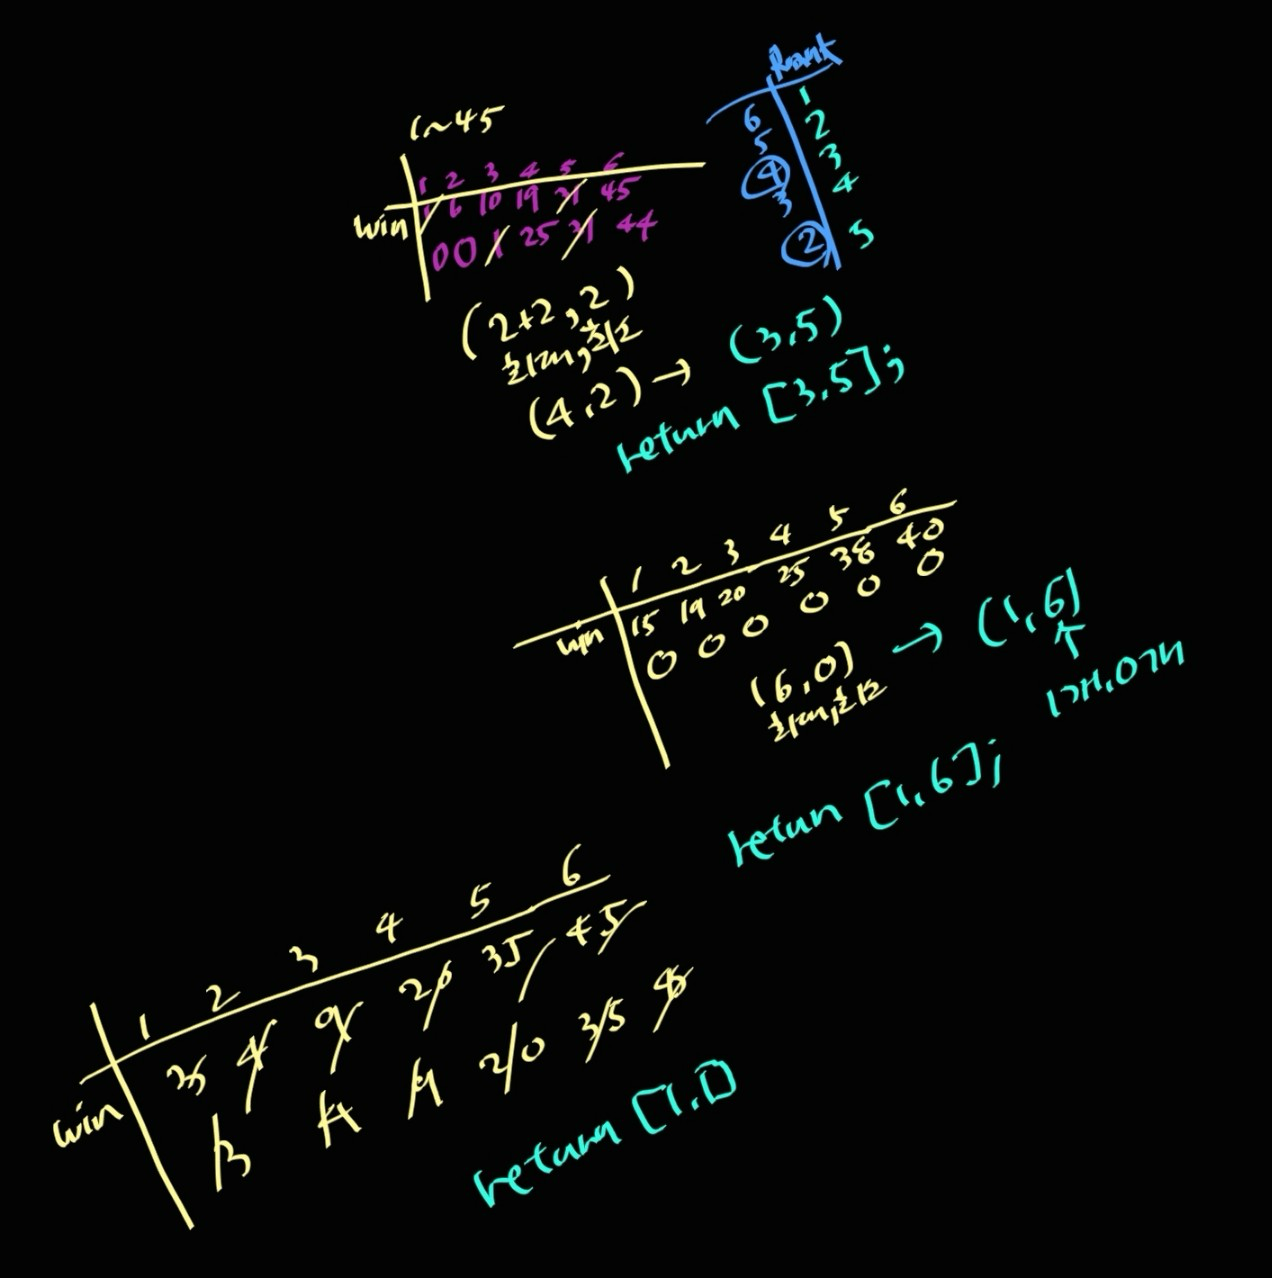 1~45
1 2 3 4 5 6
win 1 6 10 19 31 45
0 0 1 25 31 44
(2+2, 2)
최대, 최소
(4,2) → (3,5)
return [3,5];
Rank
6 1
5 2
4 3
3 4
2 5
1 2 3 4 5 6
win 15 19 20 25 38 40
0 0 0 0 0 0
(6,0) → (1,6)
최대, 최소
↑
1개, 0개
return [1,6];
1 2 3 4 5 6
win 4 9 20 35 45
20 35
return [1,1]